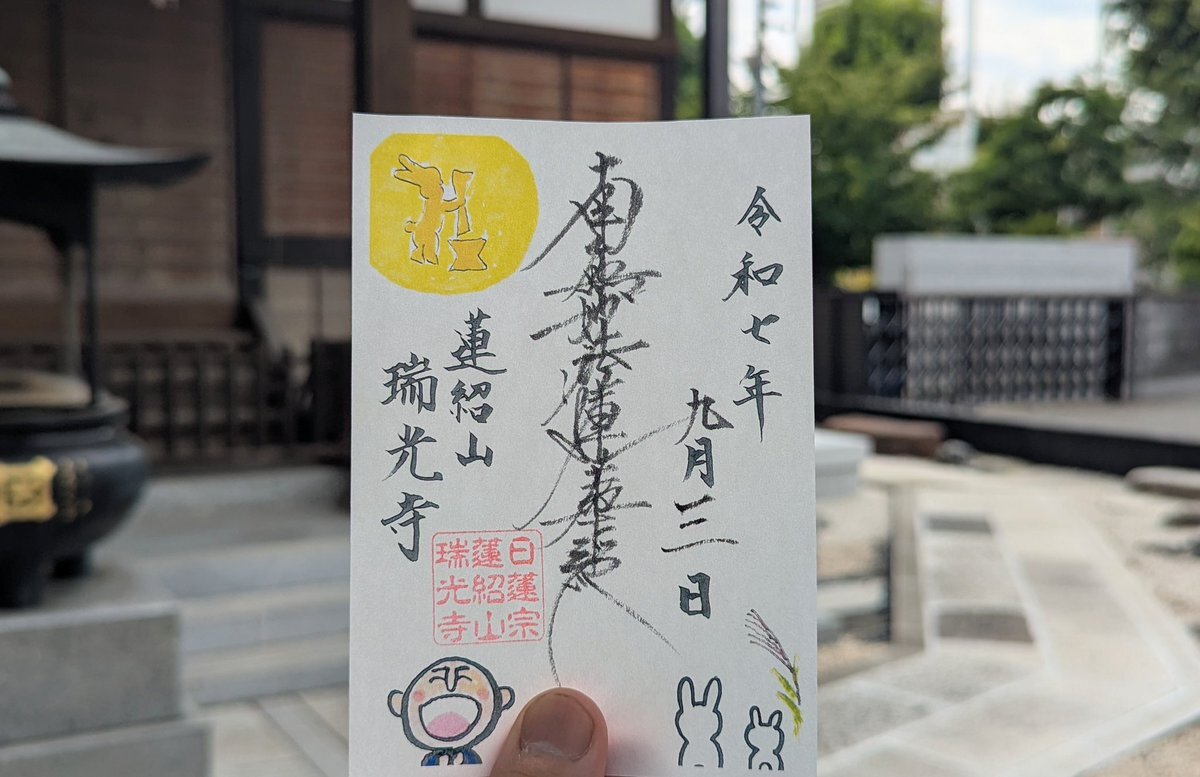 令和七年
九月三日
南無妙法蓮華経
蓮紹山
瑞光寺
日蓮宗
蓮紹山
瑞光寺